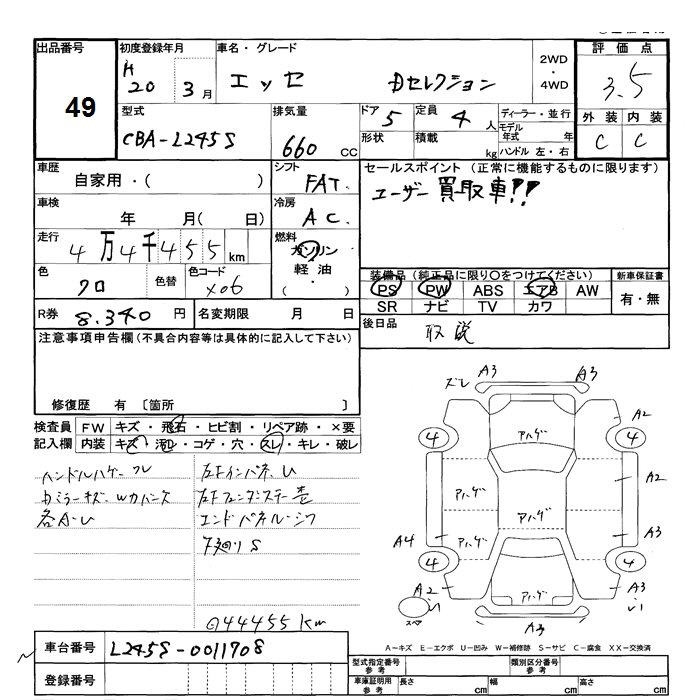 出品番号 初度登録年月 車名・グレード 2WD・4WD 評価点
49 H20 3月 エッセ Dセレクション 3.5
型式 排気量 ドア 5 定員 4 人 ディーラー・並行 外装 内装
CBA-L245S 660 CC 形状 積載 kg モデル年式 年 C C
ハンドル 左・右
車歴 シフト セールスポイント (正常に機能するものに限ります)
自家用・( ) FAT. ユーザー買取車!!
車検 冷房
年 月( 日) AC.
走行 燃料
4万4千455km ガソリン
軽油
・( )
色 色替 色コード 装備品 (純正品に限り○をつけてください) 新車保証書
クロ X06 PS PW ABS エアB AW 有・無
SR ナビ TV カワ
R券 8.340円 名変期限 月 日 後日品 取説
注意事項申告欄(不具合内容等は具体的に記入して下さい)
修復歴 有 〔箇所 〕
検査員 FW キズ・飛石・ヒビ割・リペア跡・×要
記入欄 内装 キズ・汚レ・コゲ・穴・スレ・キレ・破レ
ハンドルハゲ・スレ
各A・U
エンドパネル・シワ
下廻りS
◎44455km
ズレ A3 A3
A2
4 アハゲ 4
A2
アハゲ アハゲ
A3
A4 アハゲ
4 4
A2 アハゲ A3
スペア A3
A-キズ E-エクボ U-凹み W-補修跡 S-サビ C-腐食 XX-交換済
車台番号 L245S-0011708
登録番号
型式指定番号 参考 類別区分番号 参考
車庫証明用 参考 長さ cm 幅 cm 高さ cm